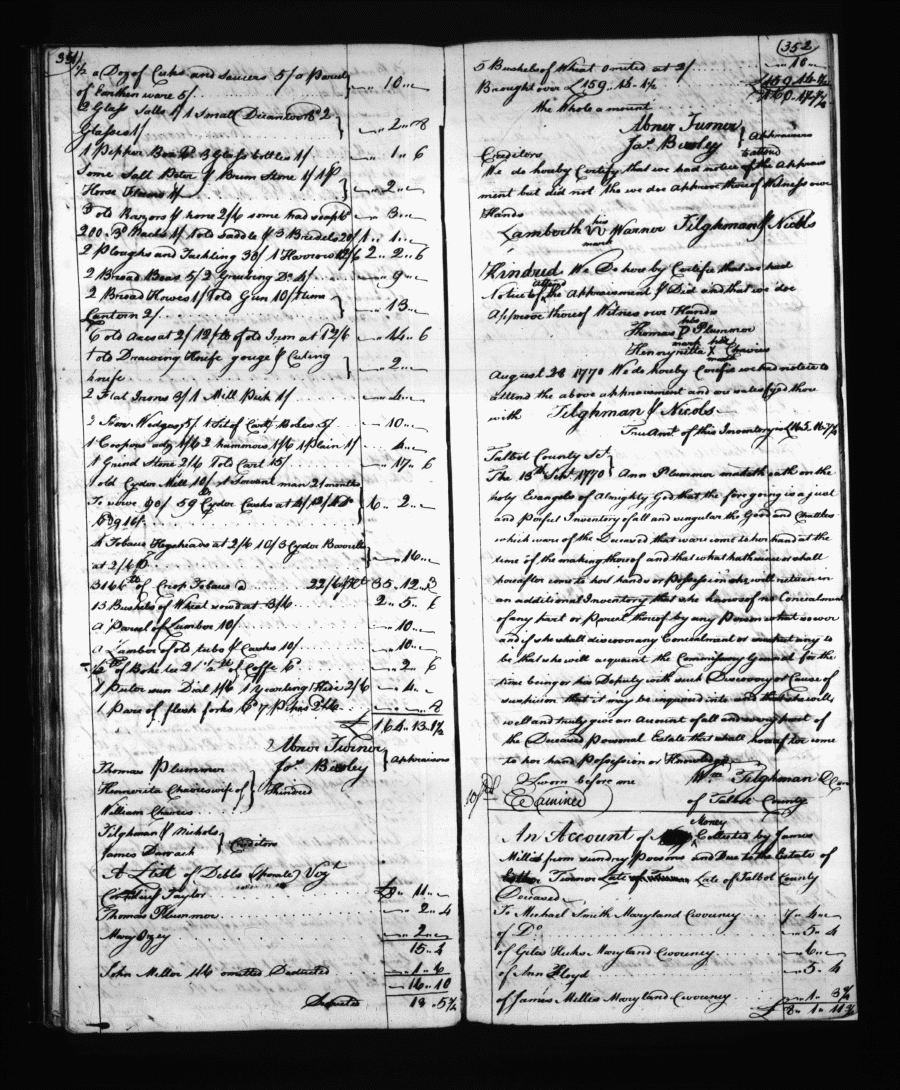 351
1/2 a Doz of Cups and saucers 5/ a Parcel
of Earthen ware 5/ .. 10 ..
2 Glass Salts 1/ 1 Small Decanter 2
Glasses 1/ .. 2 .. 8
1 Pepper Box 3 Glass bottles 1/ .. 1 .. 6
Some Salt Peter & Brim Stone 1/
Horse 1/ .. 2 ..
3 old Razors & hone 2/6 some .. 3 ..
200 1/ 1 old Saddle & 3 Bridels 20/ 1 .. 1 ..
2 Ploughs and Tackling 30/ 1 Harrow 12/6 2 .. 2 .. 6
2 Broad 5/ 2 Do 4/ .. 9 ..
2 Broad Howes 1/ 1 old Gun 10/
Lantorn 2/ .. 13 ..
6 old Axes at 2/ of old Iron at 2/6 .. 14 .. 6
1 old Drawing Knife gouge & Cuting
knife .. 2 ..
2 Flat Irons 3/ 1 Mill Peck 1/ .. 4 ..
Wedges 5/ 1 Set of Cart Boles 5/ .. 10 ..
1 Coopers adz 1/6 2 hammers 1/6 1 Plain 1/ .. 4 ..
1 Grind Stone 2/6 1 old Cart 15/ .. 17 .. 6
1 old Cyder Mill 10/ 1 Servant man 21 months
To serve 90/ 59 Cyder Casks at 6 .. 2 ..
4 Tobacco Hogsheads at 2/6 10/ 3 Cyder Barrells
at 2/ .. 16 ..
3166 lb of Crop Tobacco @ 22/6 35 .. 12 .. 3
15 Bushels of Wheat sowd at 3/6 2 .. 5 ..
a Parcel of Lumber 10/ .. 10 ..
a Lumber of old tubs & Casks 10/ .. 10 ..
1/2 lb of Bohe tea 2/ 1/2 lb of Coffe 6 .. 2 .. 6
1 Puter sun Dial 1/6 1 yearling Hide 2/6 .. 4 ..
1 Pare of flesh forks 6 7 .. 8
£ 164 .. 13 .. 1 1/2
Abner Turner
Jas. Bewley } Appraisors
Thomas Plummer
Hennerita Chavires wife of
William Chavires } Kindred
Tilghman & Nichols
James Darrach } Creditors
A List of Debts
Taylor 11 ..
Thomas Plummer .. 2 .. 4
Mary .. 2 ..
15 .. 4
John Miller 1/6 omitted Deducted .. 1 .. 6
.. 16 .. 10
13 .. 5 1/2
352
5 Bushels of Wheat omited at 2/ .. 10 ..
Brought over £159 .. 159
the Whole amount
Abner Turner
Jas. Bewley } Appraisors
Creditors
to attend
We do hereby Certify that we had notice of the Apprais
ment but did not the we doe Approve thereof Witness our
Hands
Lamborth his mark Warner Tilghman & Nicols
Kindred We Do hereby Certifie that we had
Notice to attend the Appraisement & Did and that we doe
Approve thereof Witness our Hands
Thomas his mark P Plummer
Hennyritta her mark X Chavires
August 28 1770 We do hereby Certifie we had notice to
attend the above appraisement and are satisfyed there
with Tilghman & Nicols
True Amt. of this Inventory is
Talbot County Sct.
The 15th Sept. 1770 } Ann Plummer maketh oath on the
holy Evangels of Almighty God that the fore going is a just
and Perfect Inventory of all and singular the Good and Chattles
which were of the Deceased that were come to her hand at the
time of the making thereof and that what hath since or shall
hereafter come to her hands or Possession she will return in
an additional Inventory that she knows of no Concealment
of any part or Parcel thereof by any Person what so ever
and if she shall discover any Concealment or suspect any to
be that she will acquaint the Commissary General for the
time being or his Deputy with such Discovery or Cause of
suspicion that it may be inquired into and that she will
well and truly give an Account of all and every part of
the Deceased Personal Estate that shall hereafter come
to her hand Possession or Knowledge
Sworn before me Wm. Tilghman D Com
Examined of Talbot County
Money
An Account of Collected by James
Millis from sundry Persons and Due to the Estate of
Turner Late of Talbot County
Deceased
To Michael Smith Maryland Currency .. 4 ..
of Do .. 5 .. 4
of Giles Hicks Maryland Currency .. 6 ..
of Ann Lloyd .. 5 .. 4
of James Millis Maryland Currency .. 1 .. 3
£ 8 .. 1 .. 11